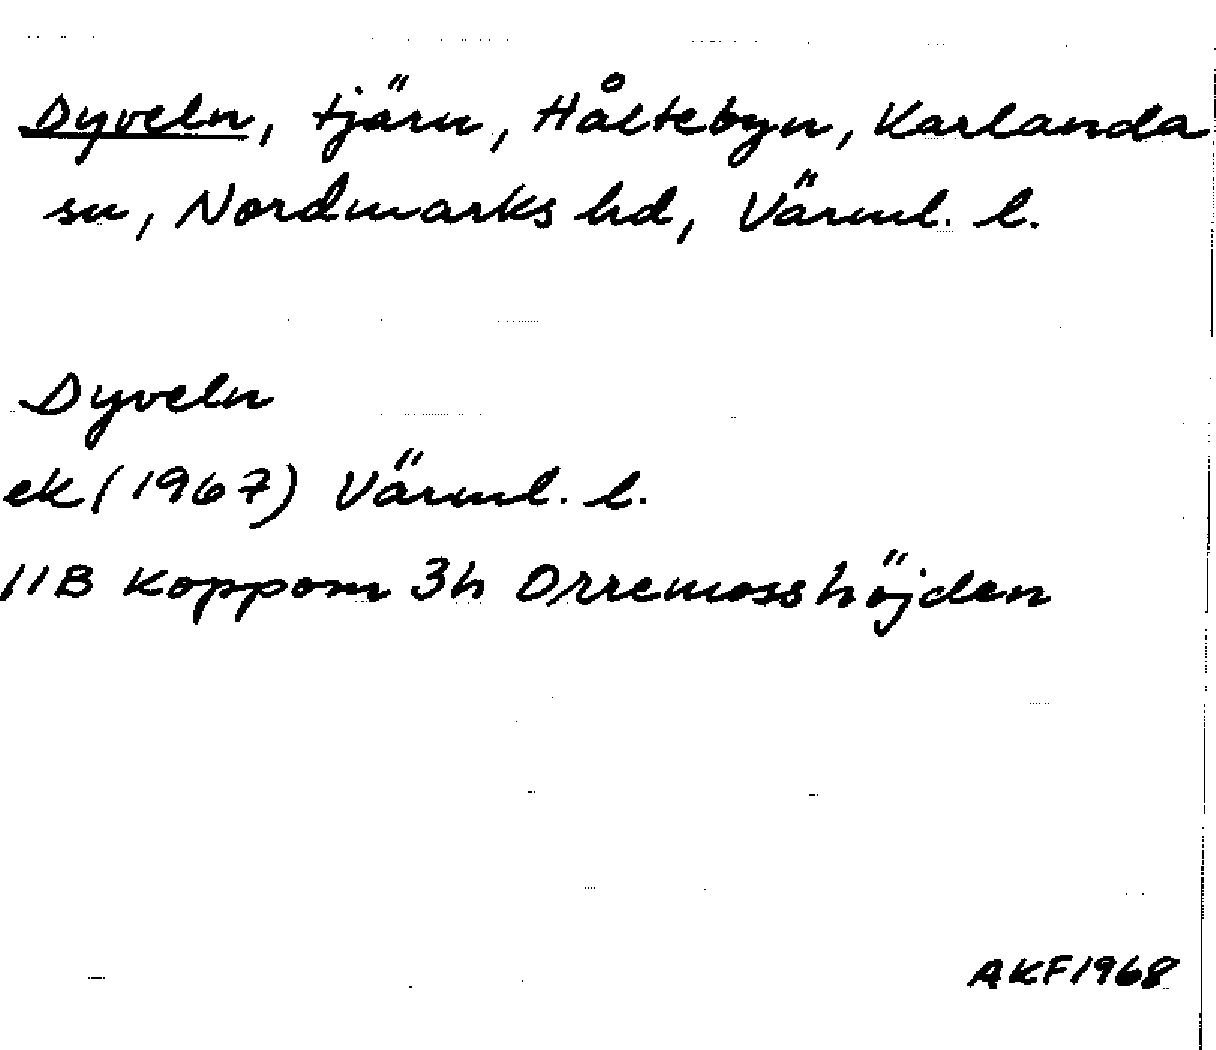 Dyveln, tjärn, Håltebyn, Karlanda
sn, Nordmarks hd, Värml. l.
Dyveln
ek (1967) Värml. l.
11B Koppom 3h Orremosshöjden
AKF1968